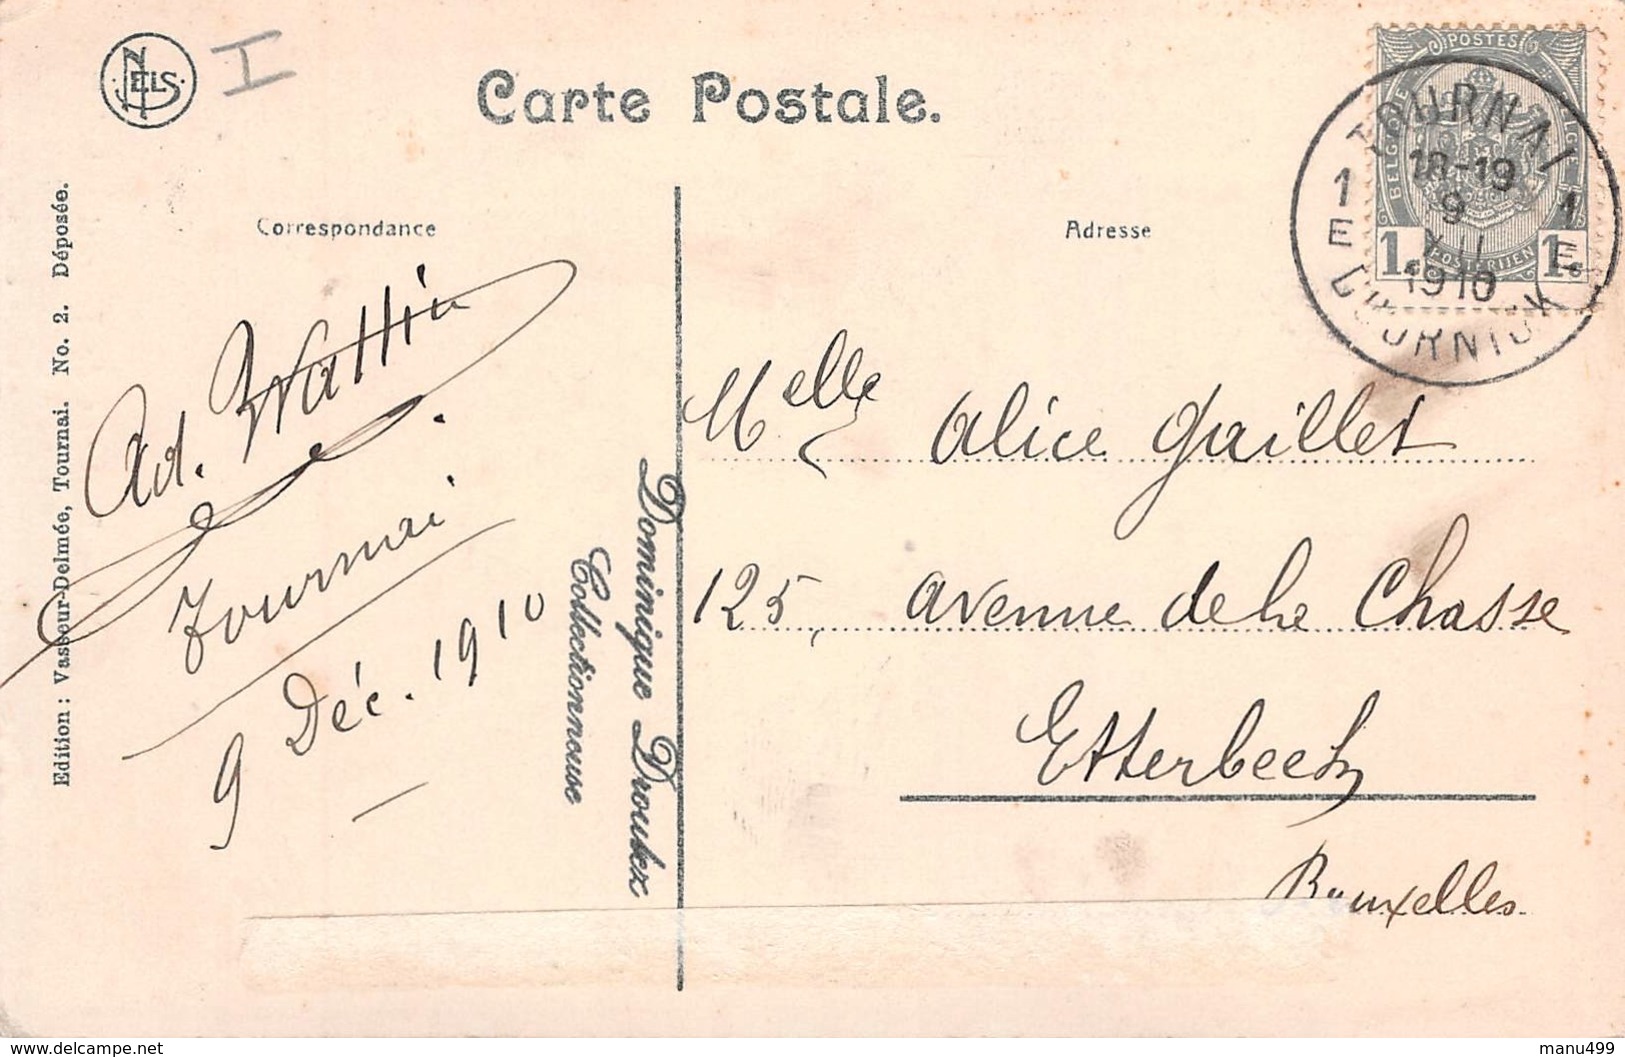 NELS
I
Carte Postale.
Correspondance
Adresse
POSTES
BELGIQUE
POSTERIJEN
1
1c
TOURNAI
18-19
9
XII
1910
1
E
1
E
DOORNIJK
Edition : Vasseur-Delmée, Tournai. No. 2. Déposée.
Ad. Wattin
Tournai
9 Déc. 1910
Dominique Droulex
Collectionneuse
Melle Alice Gaillet
125, Avenue de la Chasse
Etterbeek
Bruxelles
https://www.delcampe.net
manu499